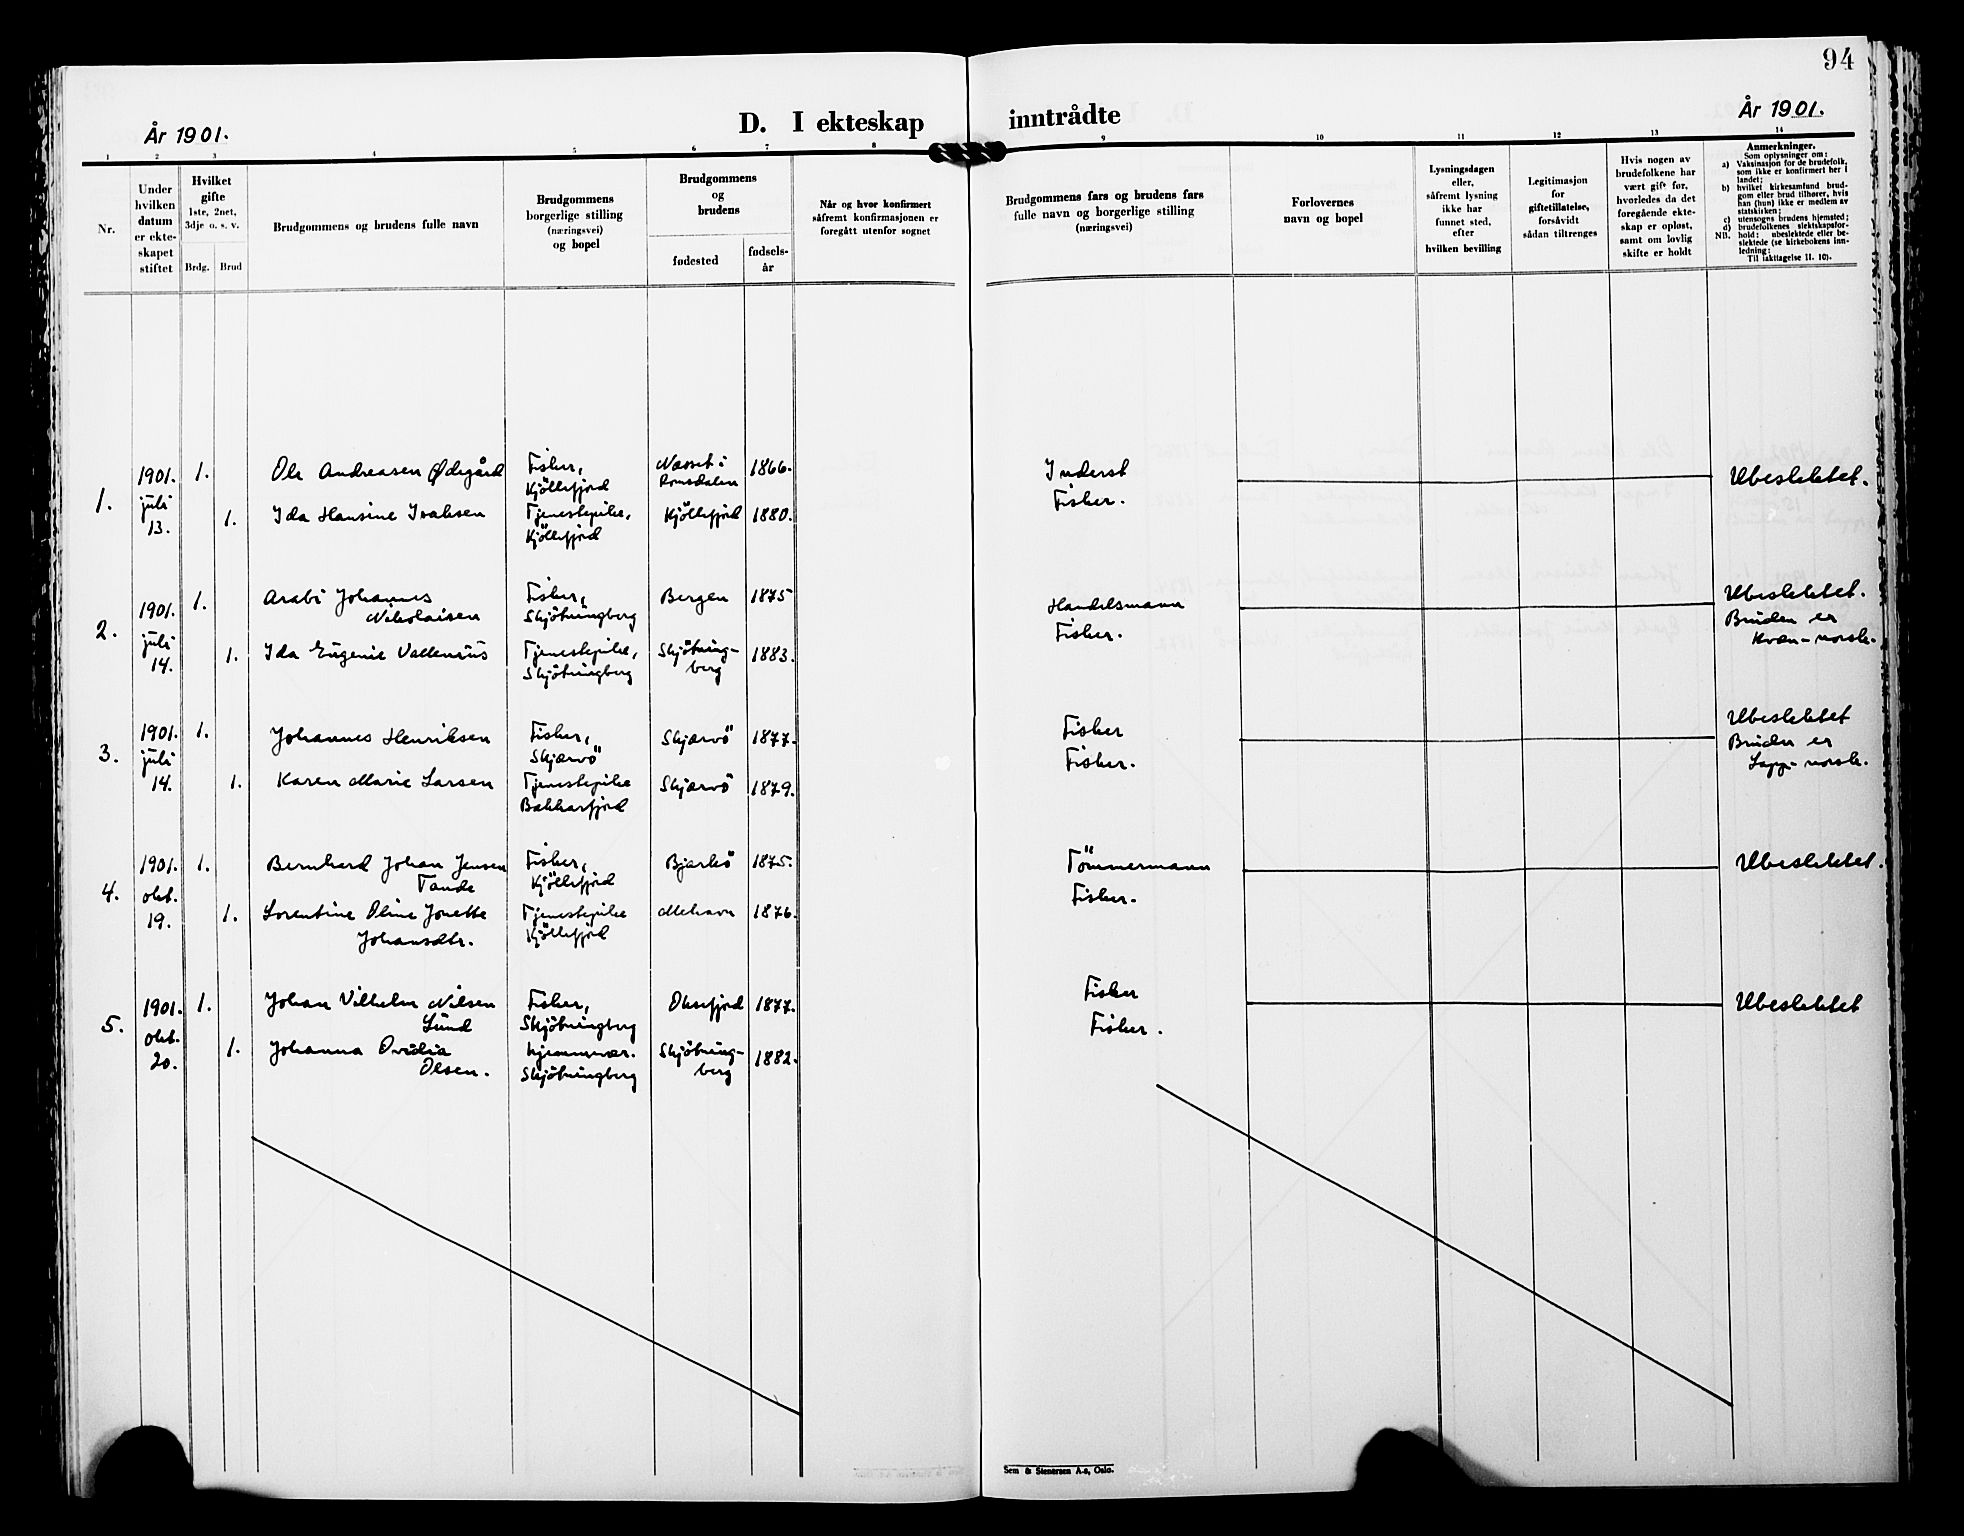 94
År 1901.
D. I ekteskap inntrådte
År 1901.
1 2 3 4 5 6 7 8 9 10 11 12 13 14
Nr.
Under
hvilken
datum
er ekte-
skapet
stiftet
Hvilket
gifte
1ste, 2net,
3dje o. s. v.
Brdg. Brud
Brudgommens og brudens fulle navn
Brudgommens
borgerlige stilling
(næringsvei)
og bopel
Brudgommens
og
brudens
fødested
fødsels-
år
Når og hvor konfirmert
såfremt konfirmasjonen er
foregått utenfor sognet
Brudgommens fars og brudens fars
fulle navn og borgerlige stilling
(næringsvei)
Forlovernes
navn og bopel
Lysningsdagen
eller,
såfremt lysning
ikke har
funnet sted,
efter
hvilken bevilling
Legitimasjon
for
giftetillatelse,
forsåvidt
sådan tiltrenges
Hvis nogen av
brudefolkene har
vært gift før,
hvorledes da det
foregående ekte-
skap er opløst,
samt om lovlig
skifte er holdt
Anmerkninger.
Som oplysninger om:
a) Vaksinasjon for de brudefolk,
som ikke er konfirmert her i
landet;
b) hvilket kirkesamfund brud-
gom eller brud tilhører, hvis
han (hun) ikke er medlem av
statskirken;
c) utensogns brudens hjemsted;
d) brudefolkenes slektskapsfor-
hold: ubeslektede eller be-
slektede (se kirkebokens inn-
ledning:
NB. Til iakttagelse II. 10).
1.
1901.
juli
13.
1.
Ole Andreasen Ødegård
Fisker,
Kjöllefjord
Nesset i
Romsdalen
1866.
Inderst
Ubeslektet.
1.
Ida Hansine Isaksen
Tjenestepike,
Kjöllefjord
Kjöllefjord
1880.
Fisker.
2.
1901.
juli
14.
1.
Arabi Johannes
Nikolaisen
Fisker,
Skjötningberg
Bergen
1875
Handelsmann
Ubeslektet.
Bruden er
Kvæn-norsk.
1.
Ida Eugenie Vallenius
Tjenestepike,
Skjötningberg
Skjötning-
berg
1883.
Fisker.
3.
1901.
juli
14.
1.
Johannes Henriksen
Fisker,
Skjærvö
Skjærvö
1877.
Fisker
Ubeslektet
Bruden er
Lapp-norsk.
1.
Karen Marie Larsen
Tjenestepike
Bakkarfjord
Skjærvö
1879.
Fisker.
4.
1901.
okt.
19.
1.
Bernhard Johan Jensen
Tande
Fisker,
Kjöllefjord
Bjarkö
1875.
Tömmermann
Ubeslektet.
1.
Lorentine Oline Jonette
Johansdtr.
Tjenestepike
Kjöllefjord
Mehavn
1876.
Fisker.
5.
1901.
okt.
20.
1.
Johan Vilhelm Nilsen
Lund
Fisker,
Skjötningberg
Oksefjord
1877.
Fisker
Ubeslektet
1.
Johanna Ovidia
Olsen.
hjemmevær.
Skjötningberg
Skjötning-
berg
1882.
Fisker.
Sem & Stenersen A-s, Oslo.